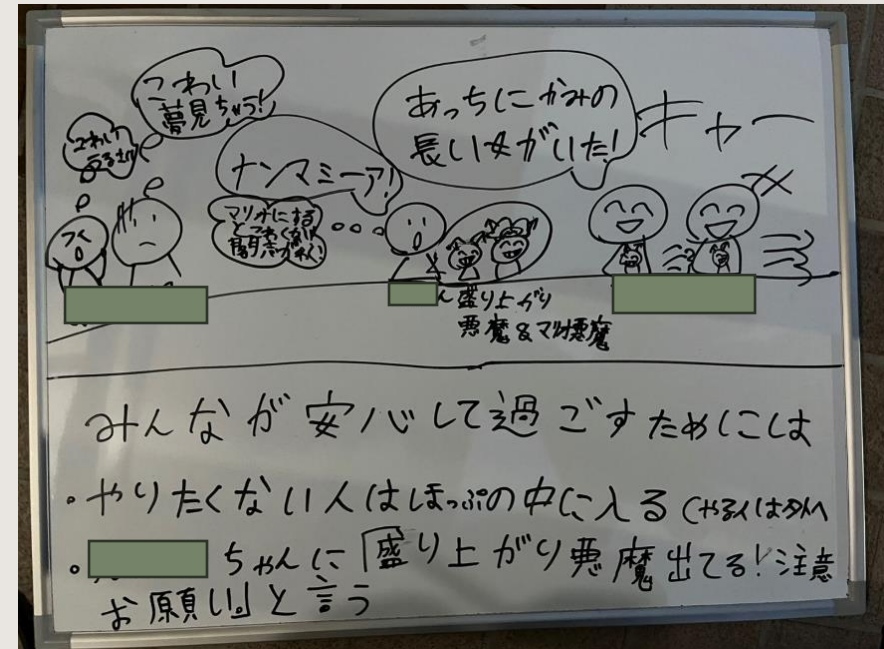 こわい
夢見ちゃう!
ナンマミーア!
あっちにかみの
長い女がいた!
キャー
盛り上がり
悪魔&マリオ悪魔
みんなが安心して過ごすためには
・やりたくない人はほっぷの中に入る(やる人は外へ
・ちゃんに「盛り上がり悪魔出てる!注意
お願い。」と言う